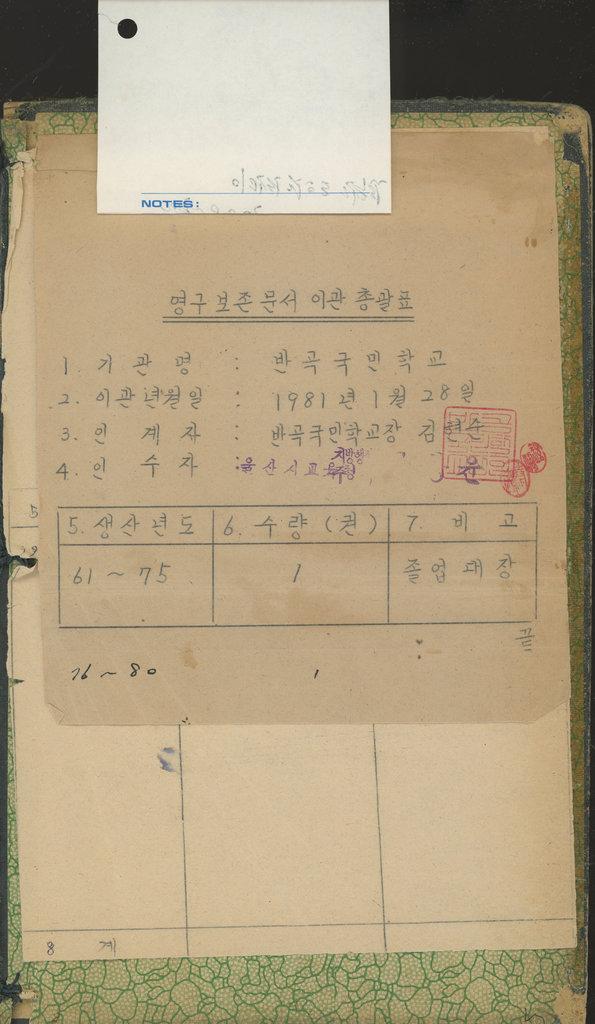 NOTES:
영구보존문서 이관 총괄표
1. 기 관 명 : 반곡국민학교
2. 이관년월일 : 1981년 1월 28일
3. 인 계 자 : 반곡국민학교장 김현순
4. 인 수 자 : 울산시교육 지방행 윤
5. 생산년도 6. 수량(권) 7. 비 고
61 ~ 75. 1 졸업대장
끝
76 ~ 80 1
8 계